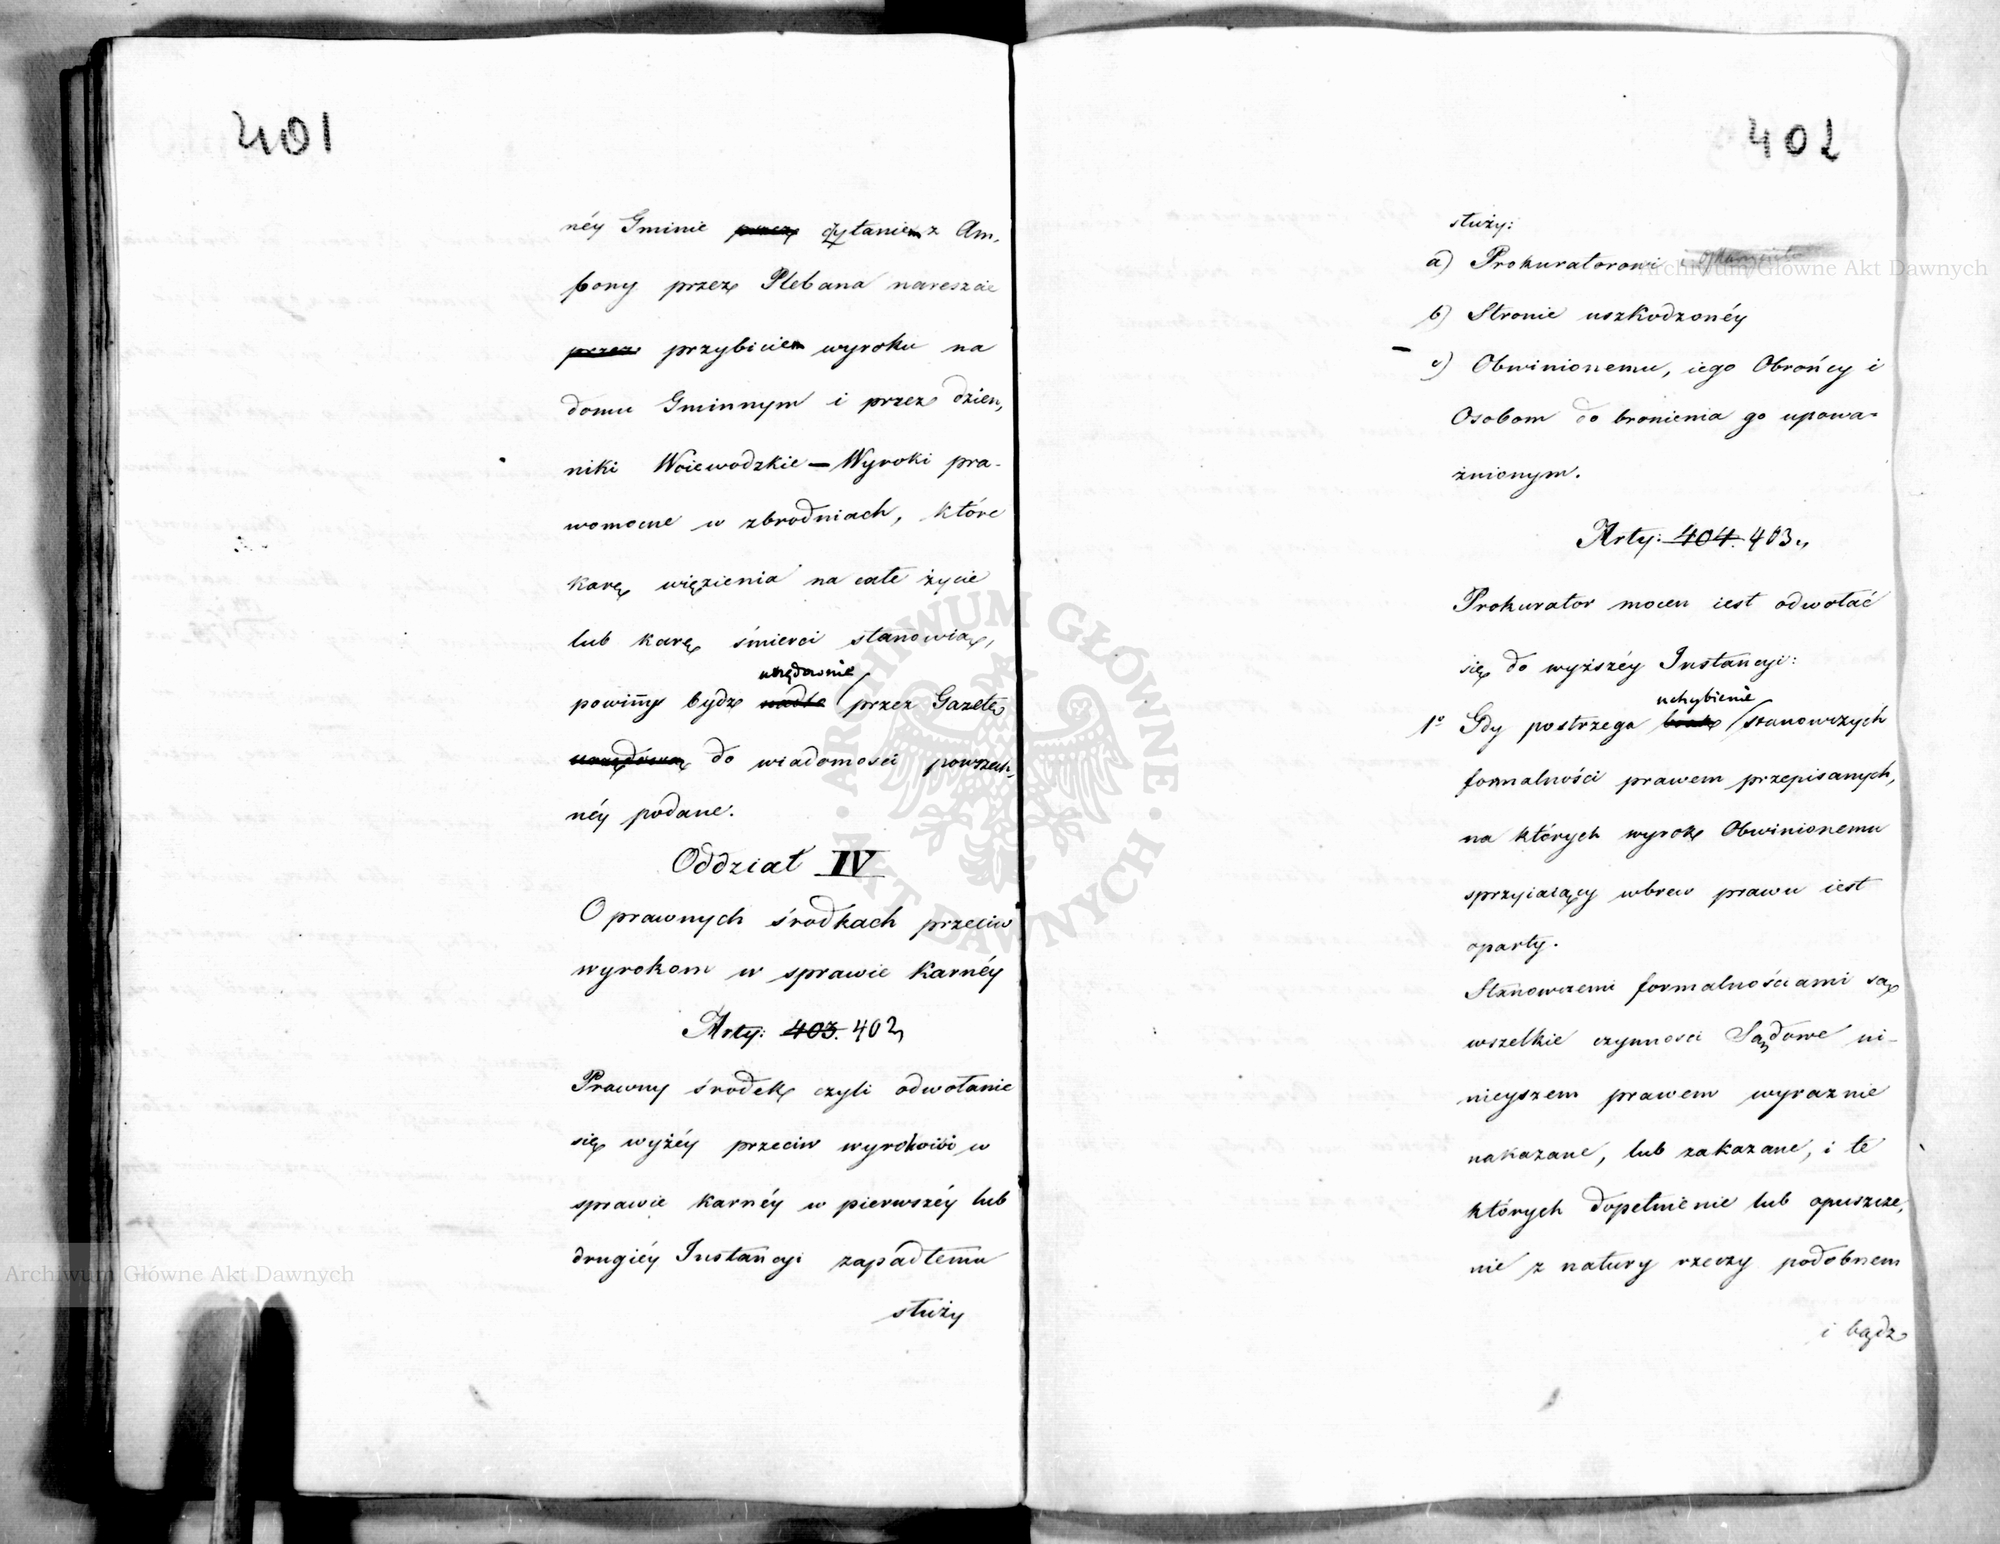 401
néy Gminie przez czytaniem z Am,
bony przez Plebana nareszcie
przez przybiciem wyroku na
domu Gminnym i przez dzien,
niki Woiewodzkie — Wyroki pra-
womocne w zbrodniach, które
karę więzienia na całe życie
lub karę śmierci stanowią,
urzędownie
powinny bydź przez Gazetę
urzędową do wiadomości powszech,
néy podane.
Oddział IV
O prawnych środkach przeciw
wyrokom w sprawie Karnéy
Arty: 403. 402,
Prawny środek czyli odwołanie
się wyżéy przeciw wyrokowi w
sprawie karnéy w pierwszéy lub
drugiéy Instancyi zapadłemu
służy
402
służy:
a) Prokuratorowi i
b) Stronie uszkodzonéy
c) Obwinionemu, iego Obrońcy i
Osobom do bronienia go upowa-
żnionym.
Arty: 404. 403.,
Prokurator mocen iest odwołać
się do wyższéy Instancyi:
uchybienie
1° Gdy postrzega brak stanowczych
formalności prawem przepisanych,
na których wyrok Obwinionemu
sprzyiaiący wbrew prawu iest
oparty.
Stanowczemi formalnościami są
wszelkie czynnosci Sądowe ni-
nieyszem prawem wyraznie
nakazane, lub zakazane, i te
których dopełnienie lub opuszcze,
nie z natury rzeczy podobnem
i bądz
Archiwum Główne Akt Dawnych
Archiwum Główne Akt Dawnych
ARCHIWUM GŁÓWNE AKT DAWNYCH